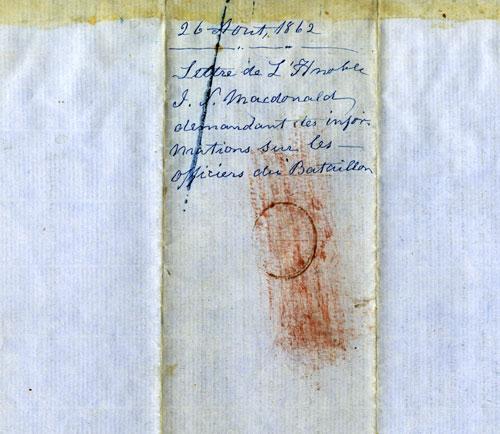 26 Août, 1862
Lettre de L'Hnoble
J. S. Macdonald
demandant des infor-
mations sur les —
Officiers du Bataillon